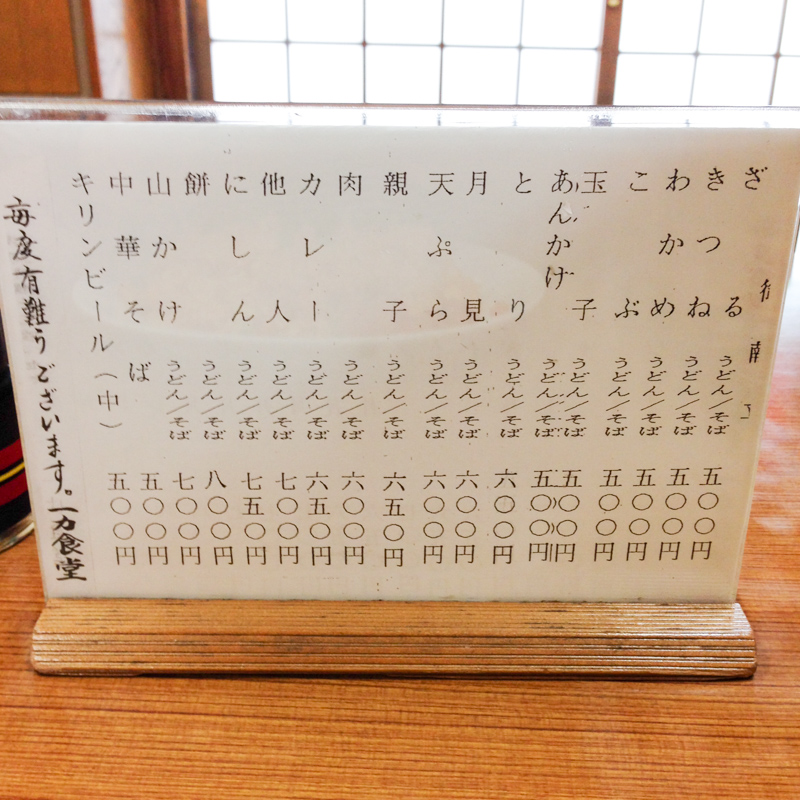 ざる うどん/そば 五〇〇円
きつね うどん/そば 五〇〇円
わかめ うどん/そば 五〇〇円
こぶ うどん/そば 五〇〇円
玉子 うどん/そば 五〇〇円
あんかけ うどん/そば 五〇〇円
とり うどん/そば 六〇〇円
月見 うどん/そば 六〇〇円
天ぷら うどん/そば 六〇〇円
親子 うどん/そば 六五〇円
肉 うどん/そば 六〇〇円
カレー うどん/そば 六五〇円
他人 うどん/そば 七〇〇円
にしん うどん/そば 七五〇円
餅 うどん/そば 八〇〇円
山かけ うどん/そば 七〇〇円
中華そば 五〇〇円
キリンビール(中) 五〇〇円
毎度有難うございます。一力食堂